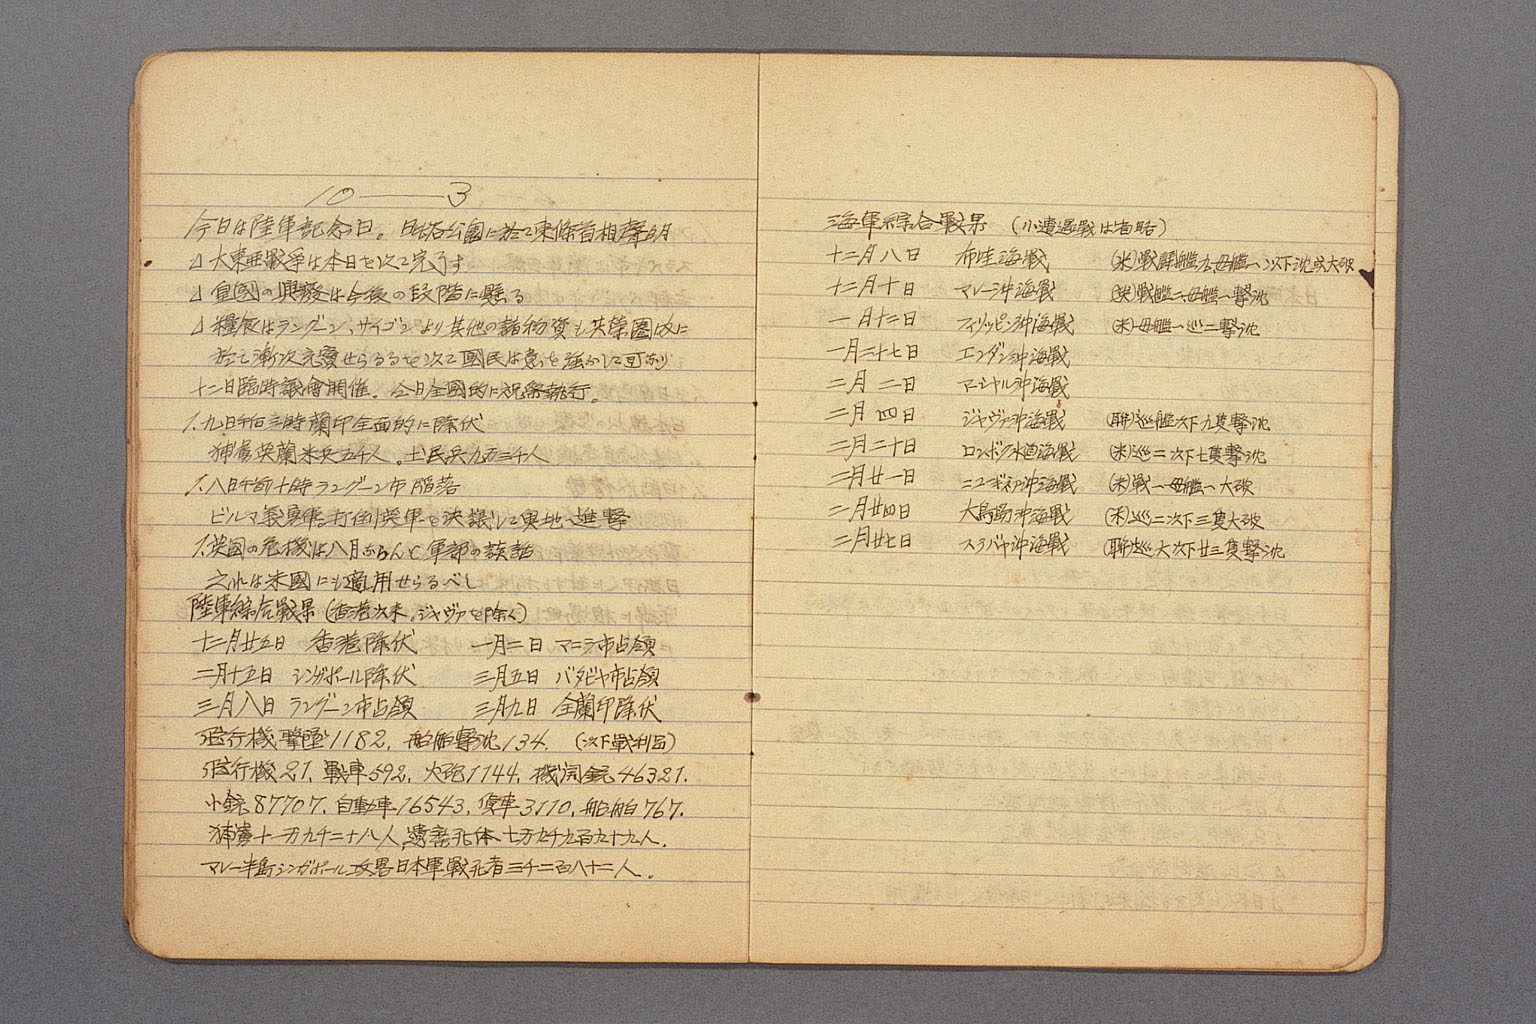 10 ― 3
今日は陸軍記念日。日比谷公園に於て東條首相聲明
⊿ 大東亜戰爭は本日を以て完了す
⊿ 皇國の興廢は今後の段階に懸る
⊿ 糧食はラングーン、サイゴンより其他の諸物資も共榮圏内に
於て漸次充實せらるるを以て國民は意を強かして可なり
十二日臨時議會開催。今日全國的に祝祭執行。
1. 九日午后三時蘭印全面的に降伏
捕虜英蘭米兵五千人。土民兵九万三千人
1. 八日午前十時ラングーン市陥落
ビルマ義勇軍、打倒英軍を決議して奥地へ進撃
1. 英國の危機は八月ならんと軍部の談話
之れは米國にも適用せらるべし
陸軍綜合戰果(香港以来。ジャヴァを除く)
十二月廿五日 香港降伏 一月二日 マニラ市占領
二月十五日 シンガポール降伏 三月五日 バタビヤ市占領
三月八日 ラングーン市占領 三月九日 全蘭印降伏
飛行機撃墜1182. 船舶撃沈134. (以下戰利品)
飛行機21. 戰車592. 火砲1144. 機関銃46321.
小銃87707. 自動車16543. 貨車3110. 船舶767.
捕虜十一万九千二十八人 遺棄死体 七万九千九百九十九人.
マレー半島シンガポール攻畧日本軍戰死者三千二百八十二人.
海軍綜合戰果 (小遭遇戰は省略)
十二月八日 布哇海戰 (米)戰闘艦九.母艦一以下沈或大破
十二月十日 マレー沖海戰 (英)戰艦二.母艦一撃沈
一月十二日 フィリッピン沖海戰 (米)母艦一巡二撃沈
一月二十七日 エンダン沖海戰
二月二日 マーシャル沖海戰
二月四日 ジャヴァ沖海戰 (聯)巡艦以下九隻撃沈
二月二十日 ロンボク水道海戰 (米)巡二以下七隻撃沈
二月廿一日 ニューギニア沖海戰 (米)戰一母艦一大破
二月廿四日 大鳥島沖海戰 (米)巡二以下三隻大破
二月廿七日 スラバヤ沖海戰 (聯)巡大以下廿三隻撃沈